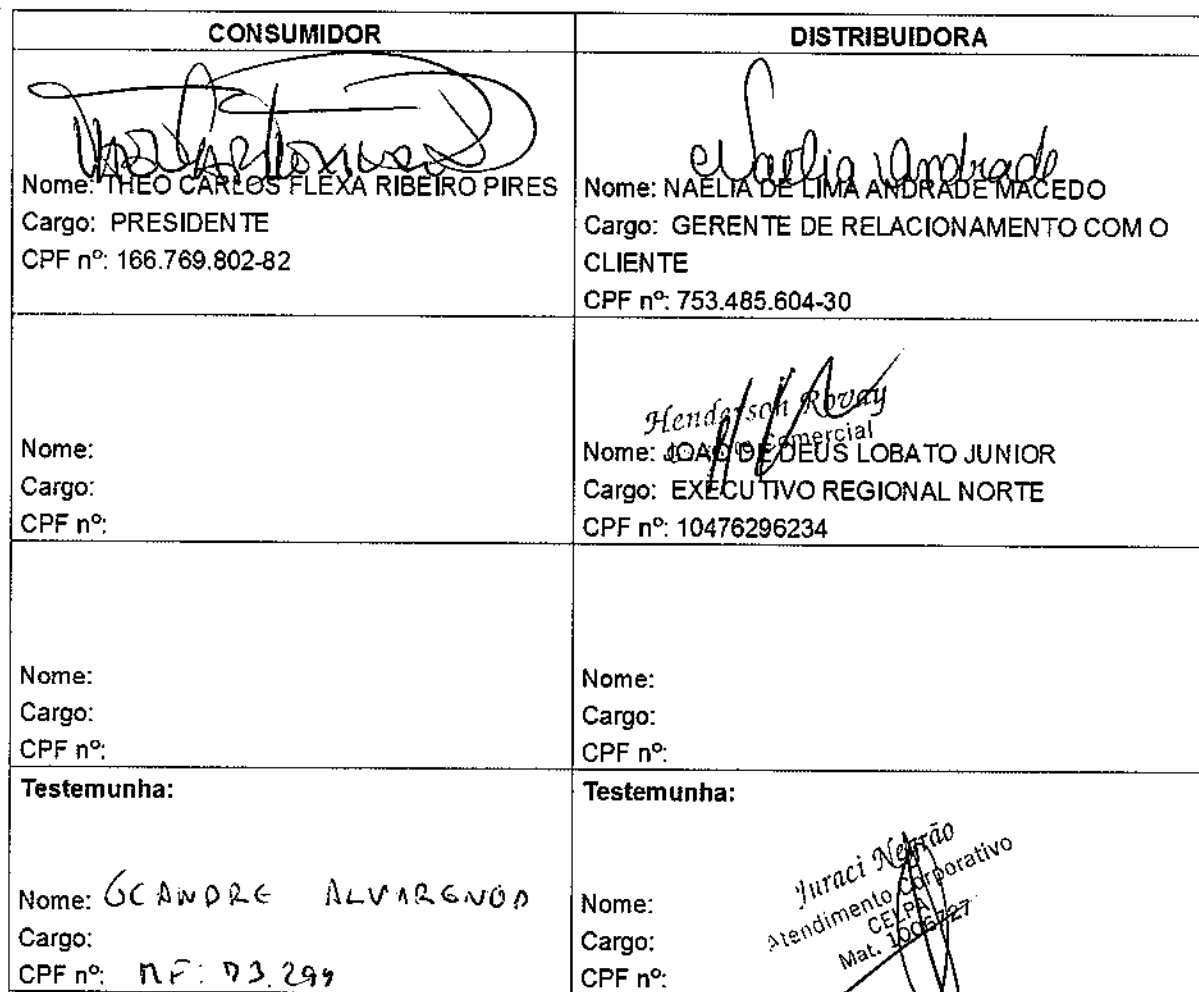 CONSUMIDOR
DISTRIBUIDORA
Nome: THEO CARLOS FLEXA RIBEIRO PIRES
Cargo: PRESIDENTE
CPF nº: 166.769.802-82
Naelia Andrade
Nome: NAELIA DE LIMA ANDRADE MACEDO
Cargo: GERENTE DE RELACIONAMENTO COM O
CLIENTE
CPF nº: 753.485.604-30
Nome:
Cargo:
CPF nº:
Henderson Rovay
Comercial
Nome: JOAO DE DEUS LOBATO JUNIOR
Cargo: EXECUTIVO REGIONAL NORTE
CPF nº: 10476296234
Nome:
Cargo:
CPF nº:
Nome:
Cargo:
CPF nº:
Testemunha:
Nome:
Cargo:
CPF nº:
Testemunha:
Juraci Negrão
Atendimento Corporativo
CELPA
Mat. 1006727
Nome:
Cargo:
CPF nº: